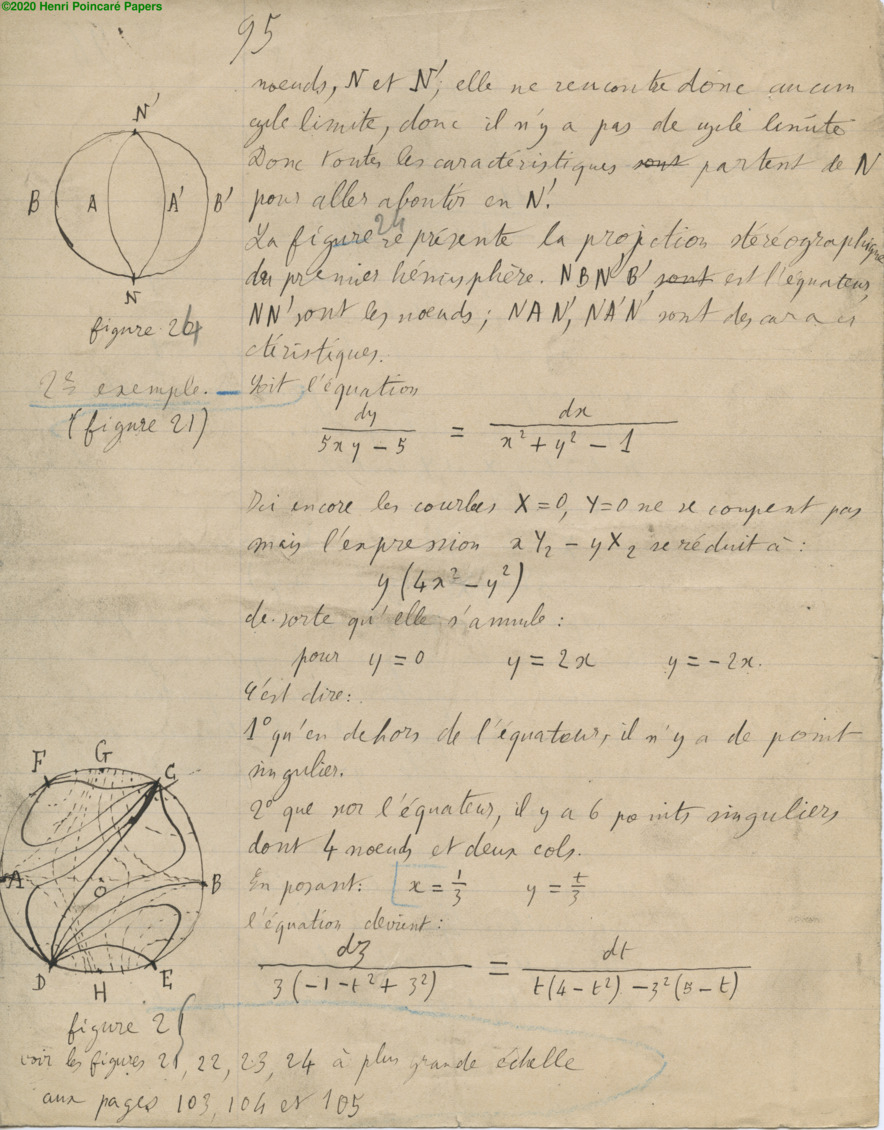 ©2020 Henri Poincaré Papers
95
noeuds, N et N'; elle ne rencontre donc aucun
cycle limite, donc il n'y a pas de cycle limite
Donc toutes les caractéristiques sont partent de N
pour aller aboutir en N'.
La figure 24 représente la projection stéréographique
du premier hémisphère. NBN'B' sont est l'équateur,
NN' sont les noeuds; NAN', NA'N' sont des cara
ctéristiques.
N'
B A A' B'
N
figure 24
2d exemple. — Soit l'équation
(figure 21)
dy / 5xy - 5 = dx / x² + y² - 1
Ici encore les courbes X = 0, Y = 0 ne se coupent pas
mais l'expression xY₂ - yX₂ se réduit à :
y (4x² - y²)
de sorte qu'elle s'annule :
pour y = 0 y = 2x y = -2x.
C'est dire:
1° qu'en dehors de l'équateur, il n'y a de point
singulier.
2° que sur l'équateur, il y a 6 points singuliers
dont 4 noeuds et deux cols.
En posant: x = 1/z y = t/z
l'équation devient :
dz / z(-1 - t² + z²) = dt / t(4 - t²) - z²(5 - t)
F G C
A O B
D H E
figure 21
voir les figures 21, 22, 23, 24 à plus grande échelle
aux pages 103, 104 et 105